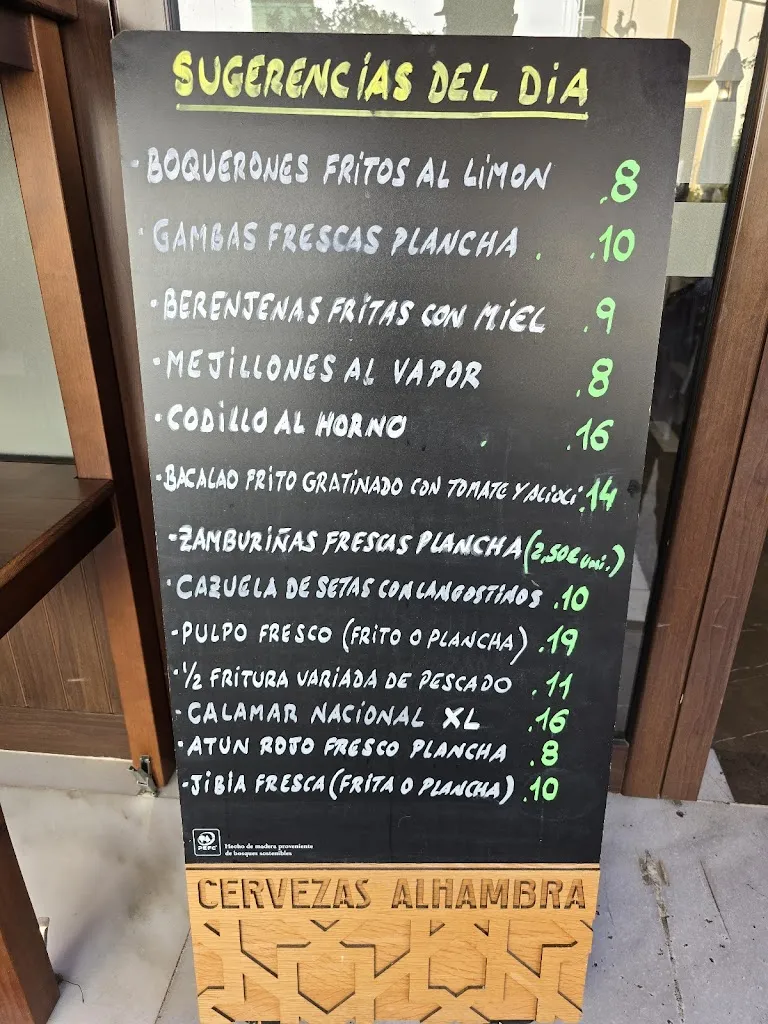 SUGERENCIAS DEL DIA
· BOQUERONES FRITOS AL LIMON .8
· GAMBAS FRESCAS PLANCHA . .10
· BERENJENAS FRITAS CON MIEL .9
· MEJILLONES AL VAPOR .8
· CODILLO AL HORNO . .16
· BACALAO FRITO GRATINADO CON TOMATE Y ALIOLI .14
· ZAMBURIÑAS FRESCAS PLANCHA (2,50€ uni.)
· CAZUELA DE SETAS CON LANGOSTINOS .10
· PULPO FRESCO (FRITO O PLANCHA) .19
· 1/2 FRITURA VARIADA DE PESCADO .11
· CALAMAR NACIONAL XL .16
· ATUN ROJO FRESCO PLANCHA .8
· JIBIA FRESCA (FRITA O PLANCHA) .10
PEFC
Hecho de madera proveniente
de bosques sostenibles
CERVEZAS ALHAMBRA